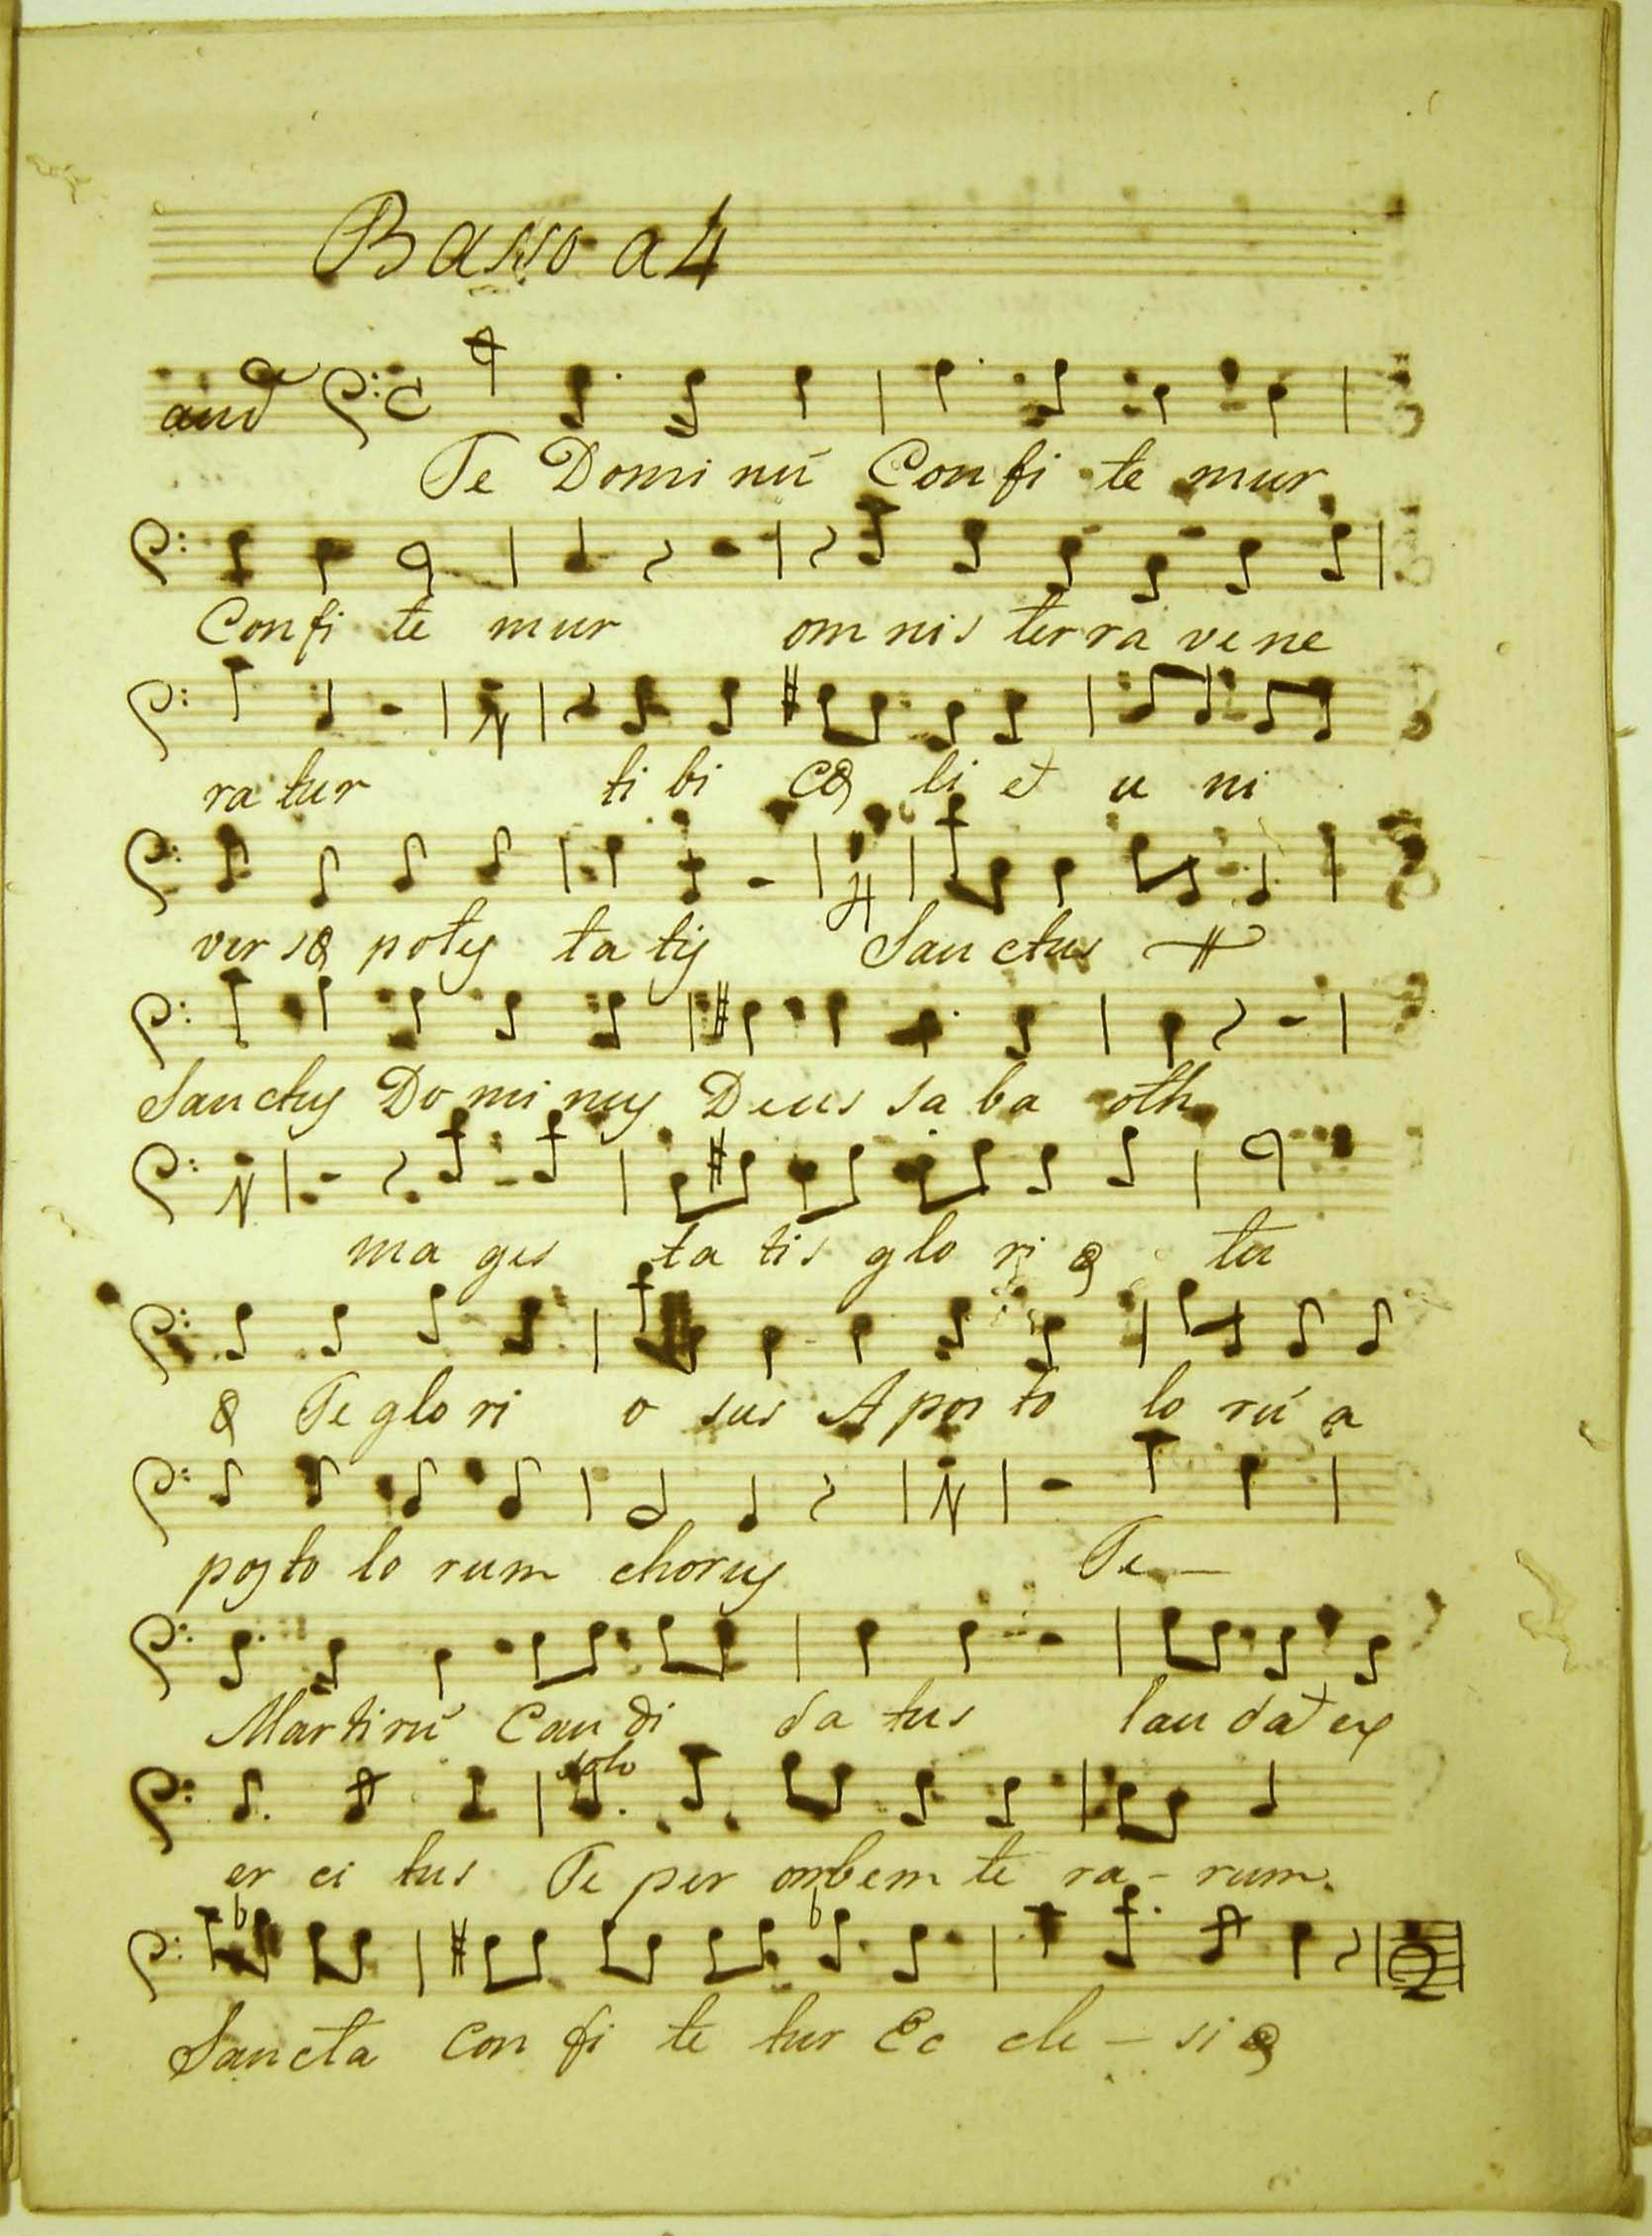 Basso a 4
and
Te Dominú Confi te mur
Confi te mur om nis terra vene
ra tur ti bi Cæ li et u ni
ver sæ potes ta tis Sanctus
Sanctus Do mi nus Deus sa ba oth
ma ges ta tis glo ri æ tu
æ Te glo ri o sus A pos to lo rú a
posto lo rum chorus Te —
Martirú Can di da tus lau dat ex
solo
er ci tus Te per orbem te ra - rum.
Sancta Con fi te tur Ec cle - si æ